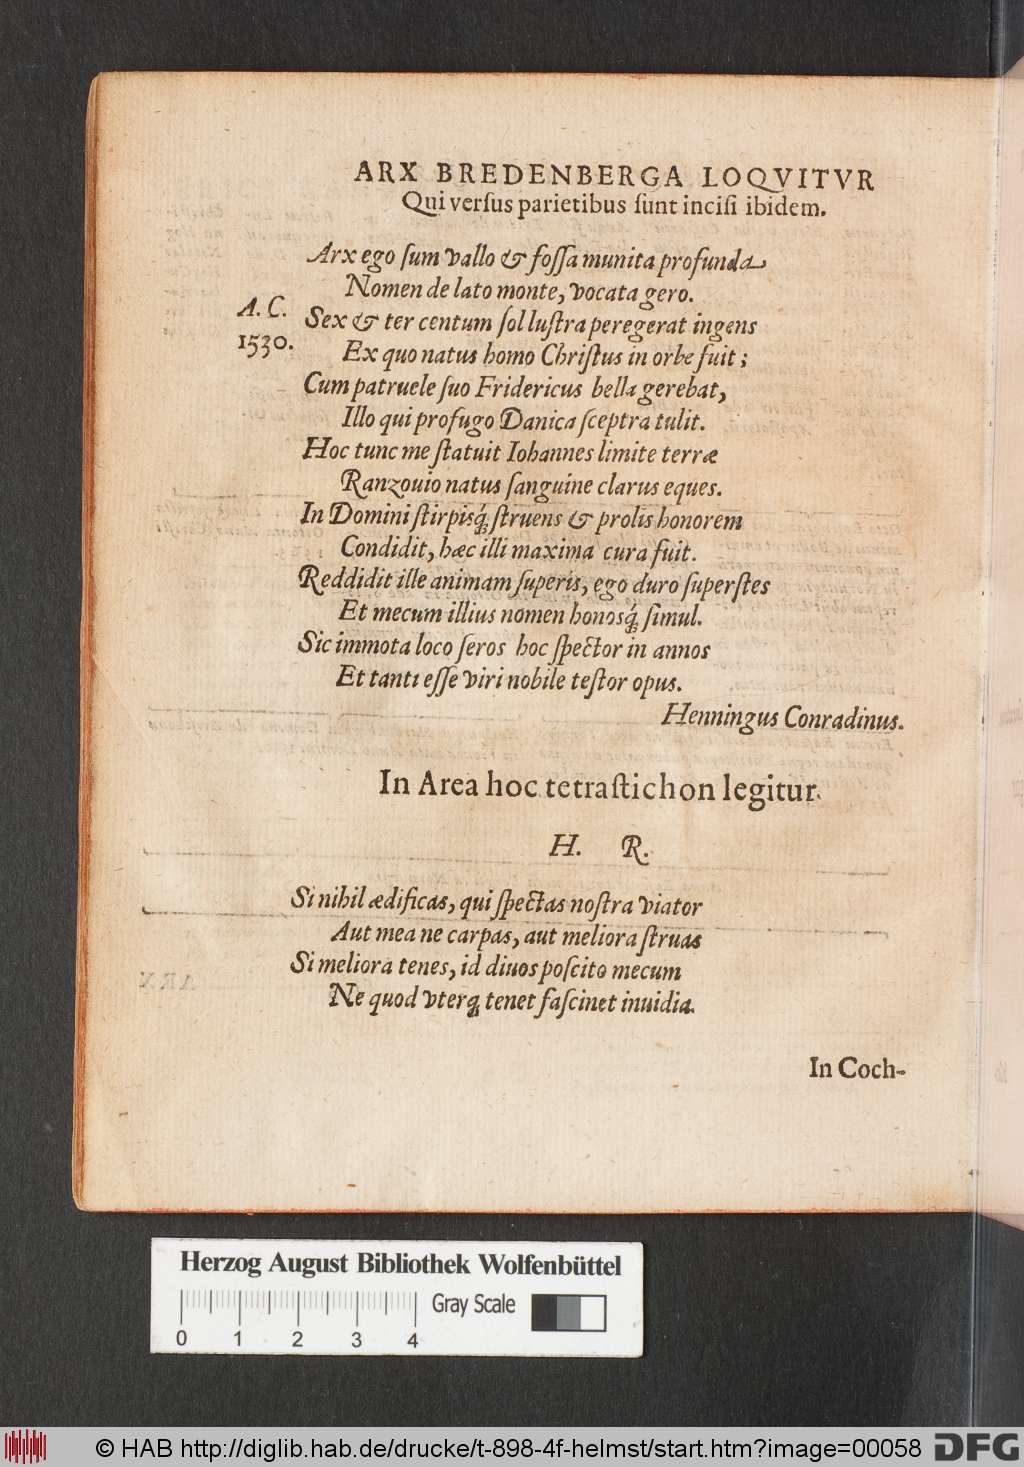 ARX BREDENBERGA LOQVITVR
Qui verſus parietibus ſunt inciſi ibidem.
Arx ego ſum vallo & foſſa munita profunda
Nomen de lato monte, vocata gero.
A. C.
Sex & ter centum ſol luſtra peregerat ingens
1530.
Ex quo natus homo Chriſtus in orbe fuit;
Cum patruele ſuo Fridericus bella gerebat,
Illo qui profugo Danica ſceptra tulit.
Hoc tunc me ſtatuit Iohannes limite terræ
Ranzouio natus ſanguine clarus eques.
In Domini ſtirpisq́ꝫ ſtruens & prolis honorem
Condidit, hæc illi maxima cura fuit.
Reddidit ille animam ſuperis, ego duro ſuperſtes
Et mecum illius nomen honosq́ꝫ ſimul.
Sic immota loco ſeros hoc ſpector in annos
Et tanti eſſe viri nobile teſtor opus.
Henningus Conradinus.
In Area hoc tetraſtichon legitur.
H. R.
Si nihil ædificas, qui ſpectas noſtra viator
Aut mea ne carpas, aut meliora ſtruas
Si meliora tenes, id diuos poſcito mecum
Ne quod vterqꝫ tenet faſcinet inuidia.
In Coch-
Herzog August Bibliothek Wolfenbüttel
Gray Scale
0 1 2 3 4
© HAB http://diglib.hab.de/drucke/t-898-4f-helmst/start.htm?image=00058
DFG